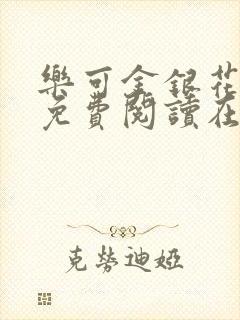 樂可金銀花
免費閱讀在
克勞迪婭